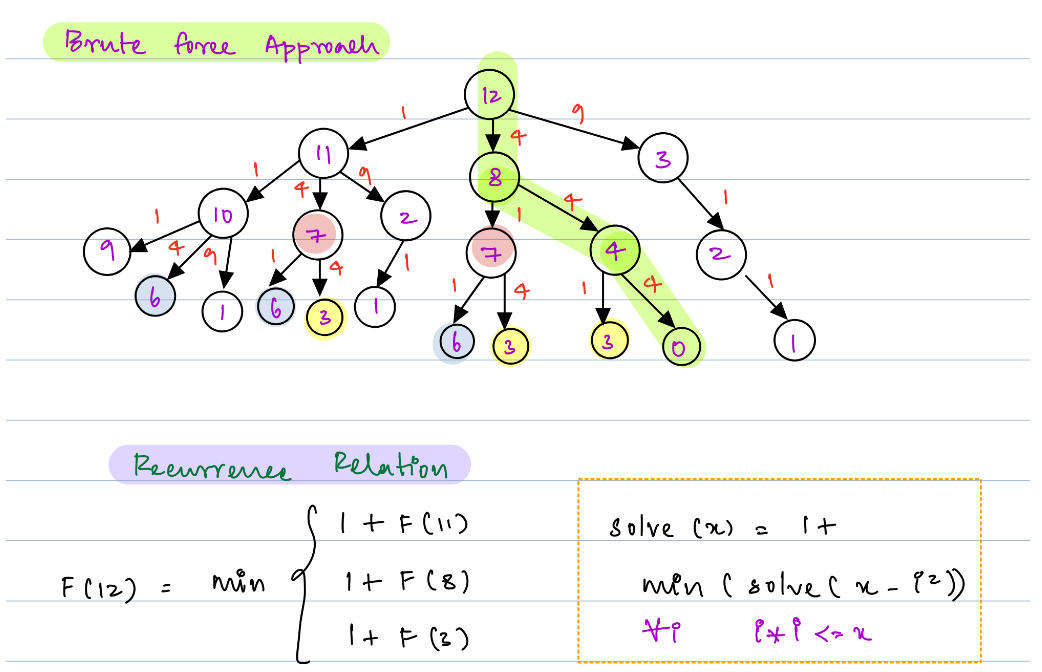 Brute force Approach
12
1 4 9
11 8 3
1 4 9 1 4 1
10 7 2 7 4 2
1 4 9 1 4 1 1 4 1 4 1
9 6 1 6 3 1 6 3 3 0 1
Recurrence Relation
F(12) = min
1 + F(11)
1 + F(8)
1 + F(3)
solve (x) = 1+
min ( solve( x - i²))
∀i i*i <= x